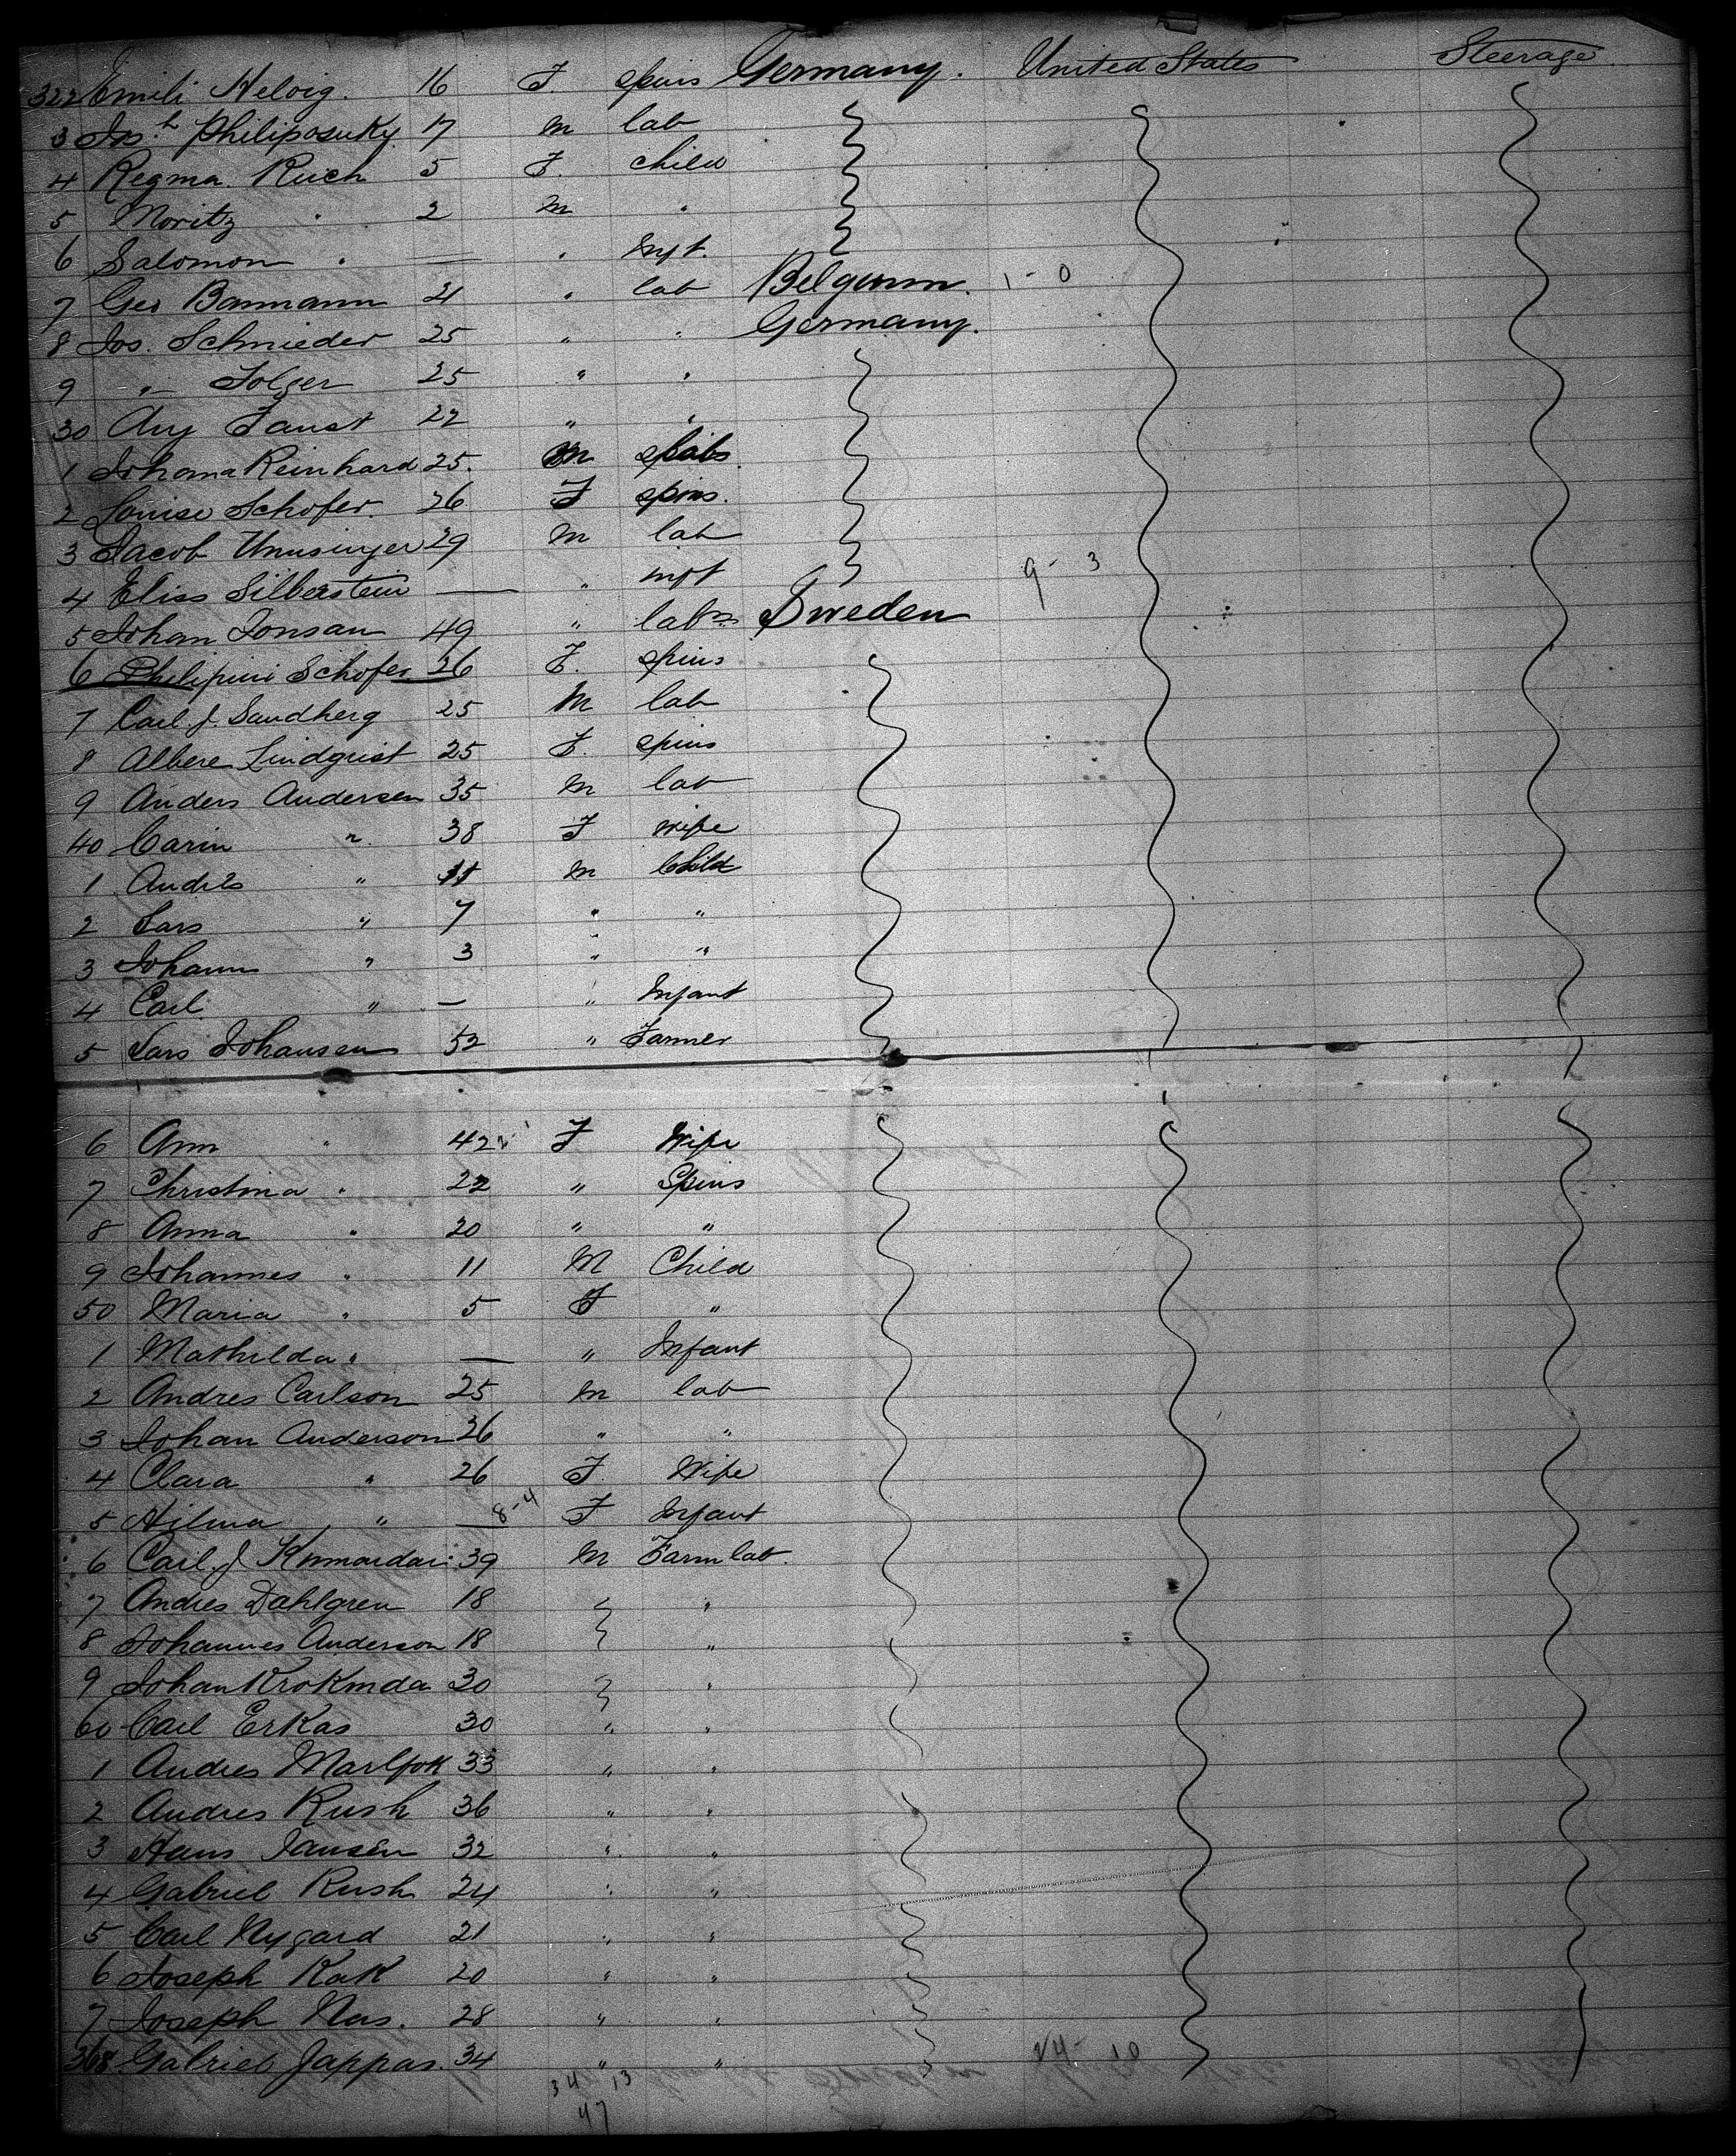 322 Emili Helvig. 16 F. spins Germany. United States Steerage
3 Jos.h Philiposuky 17 m lab
4 Regma. Ruch 5 F. child
5 Moritz " 2 m "
6 Salomon " — " Inft.
7 Geo Banmann 21 " lab Belgium. 1 - 0
8 Jos. Schnieder 25 " " Germany.
9 " Folger 25 " "
30 Aug Faust 22 " "
1 Johana Reinhard 25. m labs
2 Louise Schofer. 26 F spins.
3 Jacob Unusinger 29 m lab
4 Elias Silberstein — " inft 9 - 3
5 Johan Jonsan 49 " lab Sweden
6 Philipini Schofer 26 F. spins
7 Carl J. Sandberg 25 M lab
8 Albere Lindquist 25 F. spins
9 Anders Andersen 35 m lab
40 Carin " 38 F wife
1 Andrés " 11 m Child
2 Lars " 7 " "
3 Johann " 3 " "
4 Carl " — " Infant
5 Lars Johansen 52 " Farmer
6 Ann " 42 F Wife
7 Christina " 22 " Spins
8 Anna " 20 " "
9 Johannes " 11 M Child
50 Maria " 5 F "
1 Mathilda " — " Infant
2 Andres Carlson 25 m lab
3 Johan Anderson 26 " "
4 Clara " 26 F. Wife
5 Hilma " — 8-4 F Infant
6 Carl J 39 m Farm lab.
7 Andres Dahlgren 18 "
8 Johannes Anderson 18 "
9 Johan Krokmda 30 "
60 Carl Erkas 30 " "
1 Andres Marlfok 33 " "
2 Andres Rush 36 " "
3 Hans Jansen 32 " "
4 Gabriel Rush 24 " "
5 Carl Nygard 21 " "
6 Joseph Kak 20 " "
7 Joseph Nus. 28 " "
368 Gabriel Jappas. 34 " " 24 - 10
34 13
47